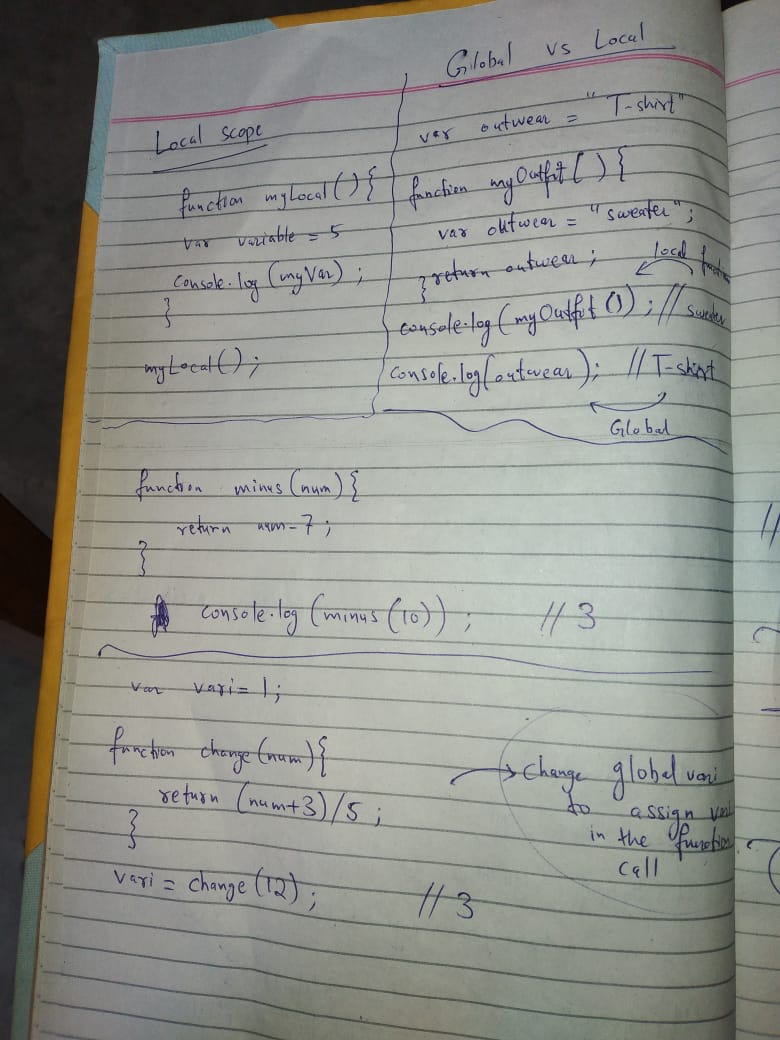 Local scope
function myLocal() {
var variable = 5
console.log(myVar);
}
myLocal();
Global vs Local
var outwear = "T-shirt"
function myOutfit() {
var outwear = "sweater";
return outwear;
}
local
console.log(myOutfit()); // sweater
console.log(outwear); // T-shirt
Global
function minus(num) {
return num-7;
}
console.log(minus(10)); // 3
var vari = 1;
function change(num) {
return (num+3)/5;
}
vari = change(12); // 3
Change global vari
to assign
in the function
call